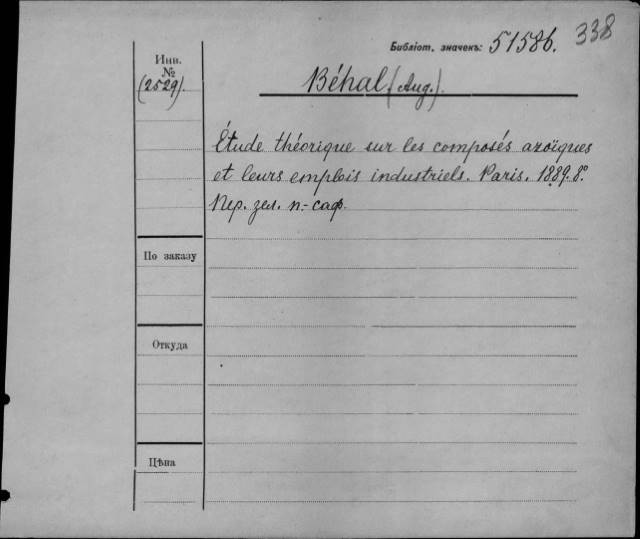 338
Библіот. значекъ: 51586.
Инв.
№
(2529).
Béhal (Aug.)
Étude théorique sur les composés azoïques
et leurs emplois industriels. Paris. 1889. 8º.
Пер. зел. п.-саф.
По заказу
Откуда
Цѣна